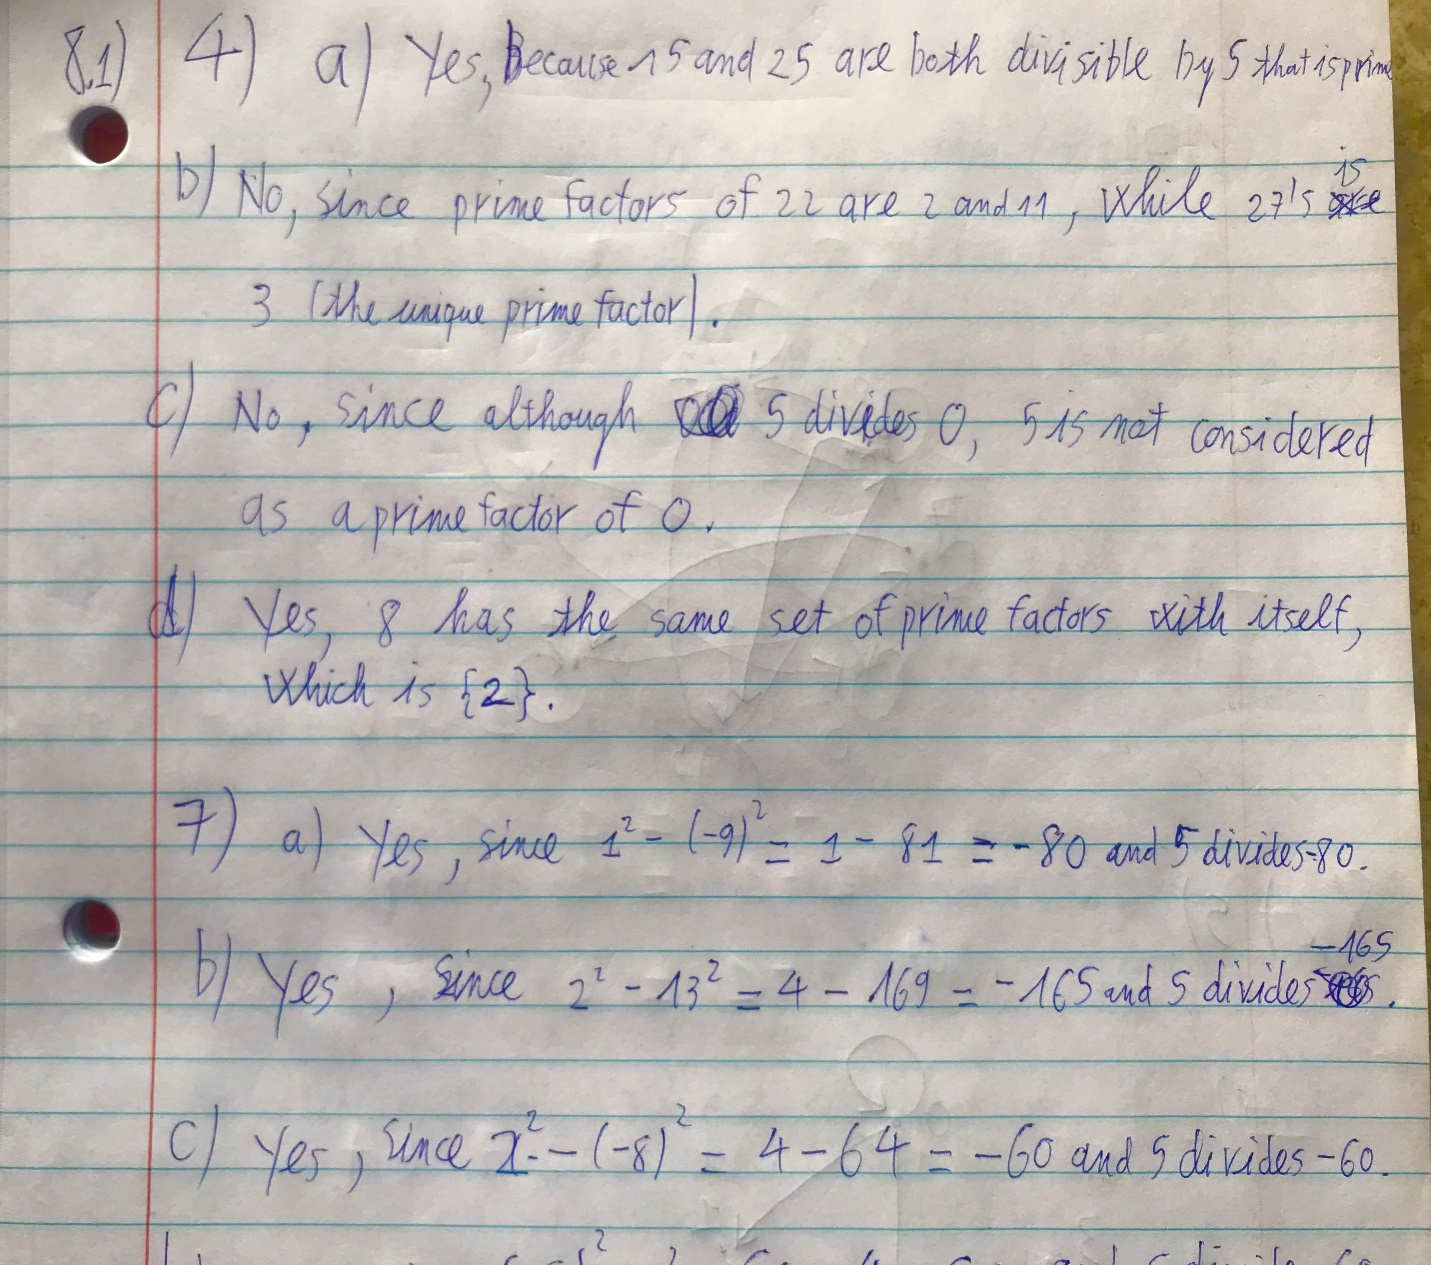 8.1) 4) a) Yes, Because 15 and 25 are both divisible by 5 that is prime
b) No, since prime factors of 22 are 2 and 11, while 27's is
3 (the unique prime factor).
c) No, since although 5 divides 0, 5 is not considered
as a prime factor of 0.
d) Yes, 8 has the same set of prime factors with itself,
which is {2}.
7) a) Yes, since 1² - (-9)² = 1 - 81 = -80 and 5 divides -80.
b) Yes, since 2² - 13² = 4 - 169 = -165 and 5 divides -165.
c) Yes, since 2² - (-8)² = 4 - 64 = -60 and 5 divides -60.